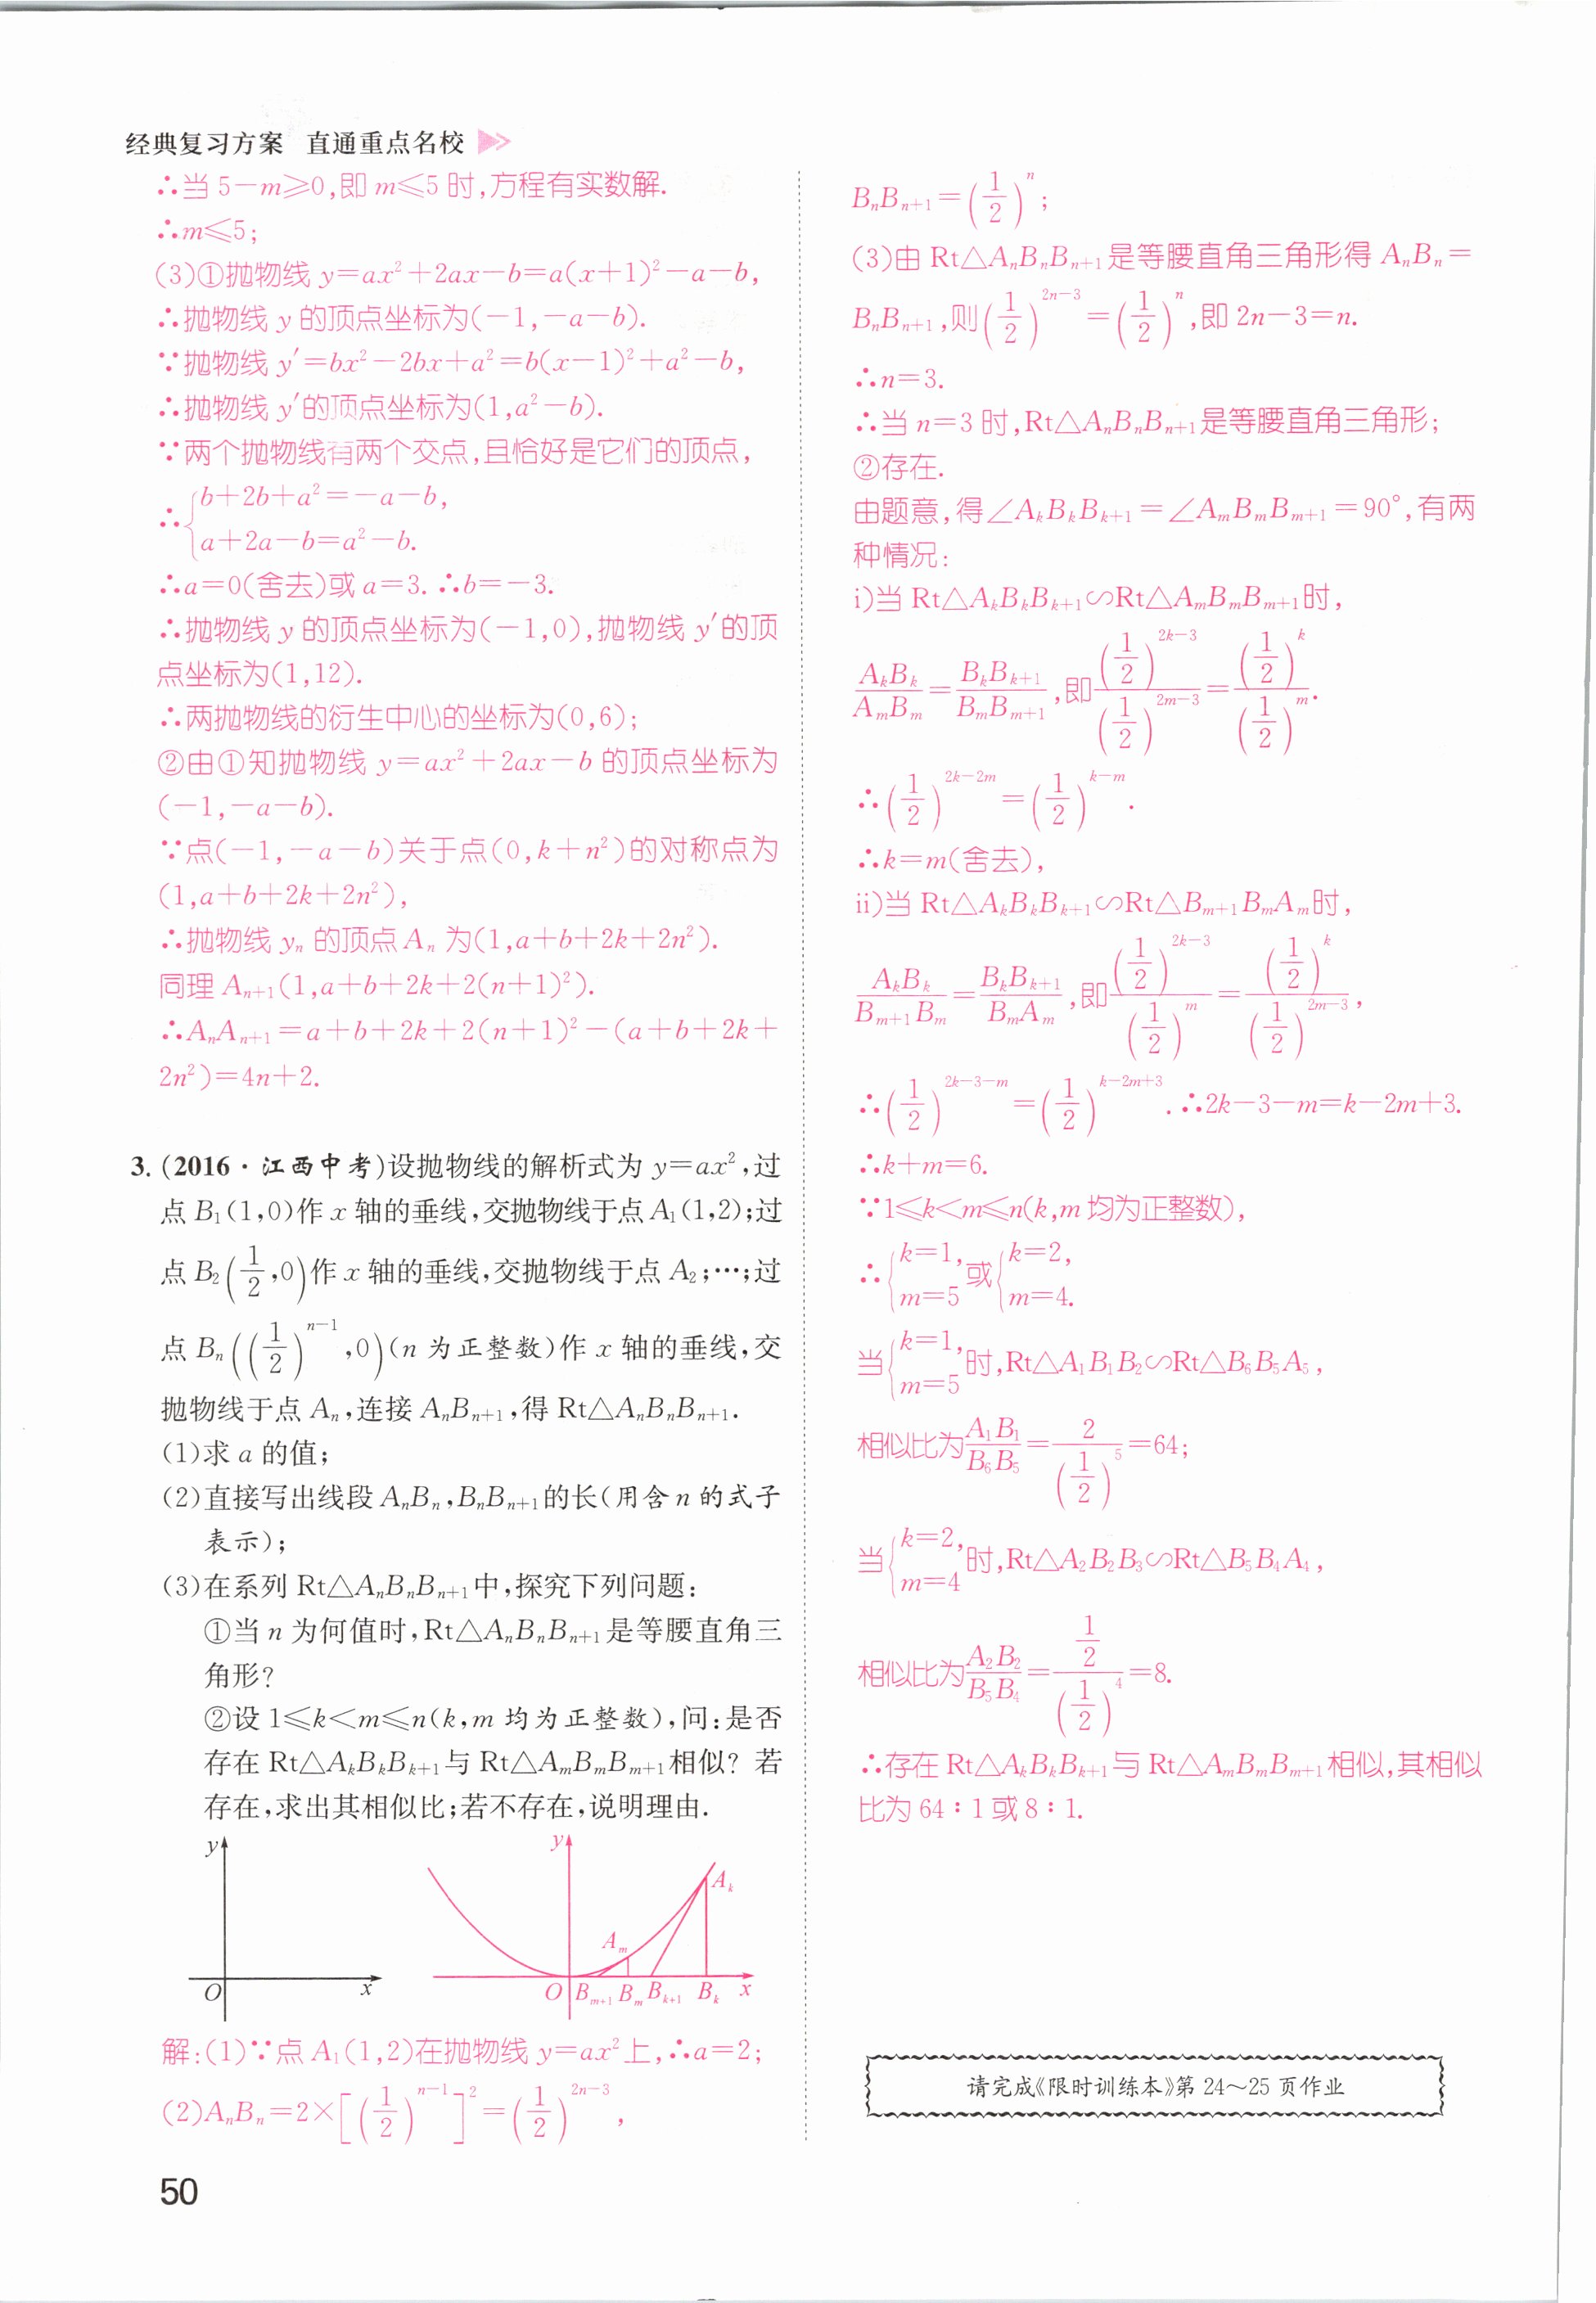 经典复习方案 直通重点名校
∴当 5－m≥0,即 m≤5 时,方程有实数解.
∴m≤5;
(3)①抛物线 y=ax²+2ax－b=a(x+1)²－a－b,
∴抛物线 y 的顶点坐标为(－1,－a－b).
∵抛物线 y′=bx²－2bx+a²=b(x－1)²+a²－b,
∴抛物线 y′的顶点坐标为(1,a²－b).
∵两个抛物线有两个交点,且恰好是它们的顶点,
∴{b+2b+a²=－a－b,
a+2a－b=a²－b.
∴a=0(舍去)或 a=3. ∴b=－3.
∴抛物线 y 的顶点坐标为(－1,0),抛物线 y′的顶
点坐标为(1,12).
∴两抛物线的衍生中心的坐标为(0,6);
②由①知抛物线 y=ax²+2ax－b 的顶点坐标为
(－1,－a－b).
∵点(－1,－a－b)关于点(0,k+n²)的对称点为
(1,a+b+2k+2n²),
∴抛物线 yₙ 的顶点 Aₙ 为(1,a+b+2k+2n²).
同理 Aₙ₊₁(1,a+b+2k+2(n+1)²).
∴AₙAₙ₊₁=a+b+2k+2(n+1)²－(a+b+2k+
2n²)=4n+2.
3. (2016·江西中考)设抛物线的解析式为 y=ax²,过
点 B₁(1,0)作 x 轴的垂线,交抛物线于点 A₁(1,2);过
点 B₂(1/2,0)作 x 轴的垂线,交抛物线于点 A₂;…;过
点 Bₙ((1/2)ⁿ⁻¹,0)(n 为正整数)作 x 轴的垂线,交
抛物线于点 Aₙ,连接 AₙBₙ₊₁,得 Rt△AₙBₙBₙ₊₁.
(1)求 a 的值;
(2)直接写出线段 AₙBₙ,BₙBₙ₊₁的长(用含 n 的式子
表示);
(3)在系列 Rt△AₙBₙBₙ₊₁中,探究下列问题:
①当 n 为何值时,Rt△AₙBₙBₙ₊₁是等腰直角三
角形?
②设 1≤k<m≤n(k,m 均为正整数),问:是否
存在 Rt△AₖBₖBₖ₊₁与 Rt△AₘBₘBₘ₊₁相似? 若
存在,求出其相似比;若不存在,说明理由.
y
O
x
y
Aₖ
Aₘ
O Bₘ₊₁ Bₘ Bₖ₊₁ Bₖ x
解:(1)∵点 A₁(1,2)在抛物线 y=ax²上,∴a=2;
(2)AₙBₙ=2×[(1/2)ⁿ⁻¹]²=(1/2)²ⁿ⁻³,
50
BₙBₙ₊₁=(1/2)ⁿ;
(3)由 Rt△AₙBₙBₙ₊₁是等腰直角三角形得 AₙBₙ=
BₙBₙ₊₁,则(1/2)²ⁿ⁻³=(1/2)ⁿ,即 2n－3=n.
∴n=3.
∴当 n=3 时,Rt△AₙBₙBₙ₊₁是等腰直角三角形;
②存在.
由题意,得∠AₖBₖBₖ₊₁=∠AₘBₘBₘ₊₁=90°,有两
种情况:
i)当 Rt△AₖBₖBₖ₊₁∽Rt△AₘBₘBₘ₊₁时,
AₖBₖ/AₘBₘ=BₖBₖ₊₁/BₘBₘ₊₁,即(1/2)²ᵏ⁻³/(1/2)²ᵐ⁻³=(1/2)ᵏ/(1/2)ᵐ.
∴(1/2)²ᵏ⁻²ᵐ=(1/2)ᵏ⁻ᵐ.
∴k=m(舍去),
ii)当 Rt△AₖBₖBₖ₊₁∽Rt△Bₘ₊₁BₘAₘ时,
AₖBₖ/Bₘ₊₁Bₘ=BₖBₖ₊₁/BₘAₘ,即(1/2)²ᵏ⁻³/(1/2)ᵐ=(1/2)ᵏ/(1/2)²ᵐ⁻³,
∴(1/2)²ᵏ⁻³⁻ᵐ=(1/2)ᵏ⁻²ᵐ⁺³. ∴2k－3－m=k－2m+3.
∴k+m=6.
∵1≤k<m≤n(k,m 均为正整数),
∴{k=1, m=5 或{k=2, m=4.
当{k=1, m=5 时,Rt△A₁B₁B₂∽Rt△B₆B₅A₅,
相似比为A₁B₁/B₆B₅=2/(1/2)⁵=64;
当{k=2, m=4 时,Rt△A₂B₂B₃∽Rt△B₅B₄A₄,
相似比为A₂B₂/B₅B₄=(1/2)/(1/2)⁴=8.
∴存在 Rt△AₖBₖBₖ₊₁与 Rt△AₘBₘBₘ₊₁相似,其相似
比为 64∶1 或 8∶1.
请完成《限时训练本》第 24～25 页作业